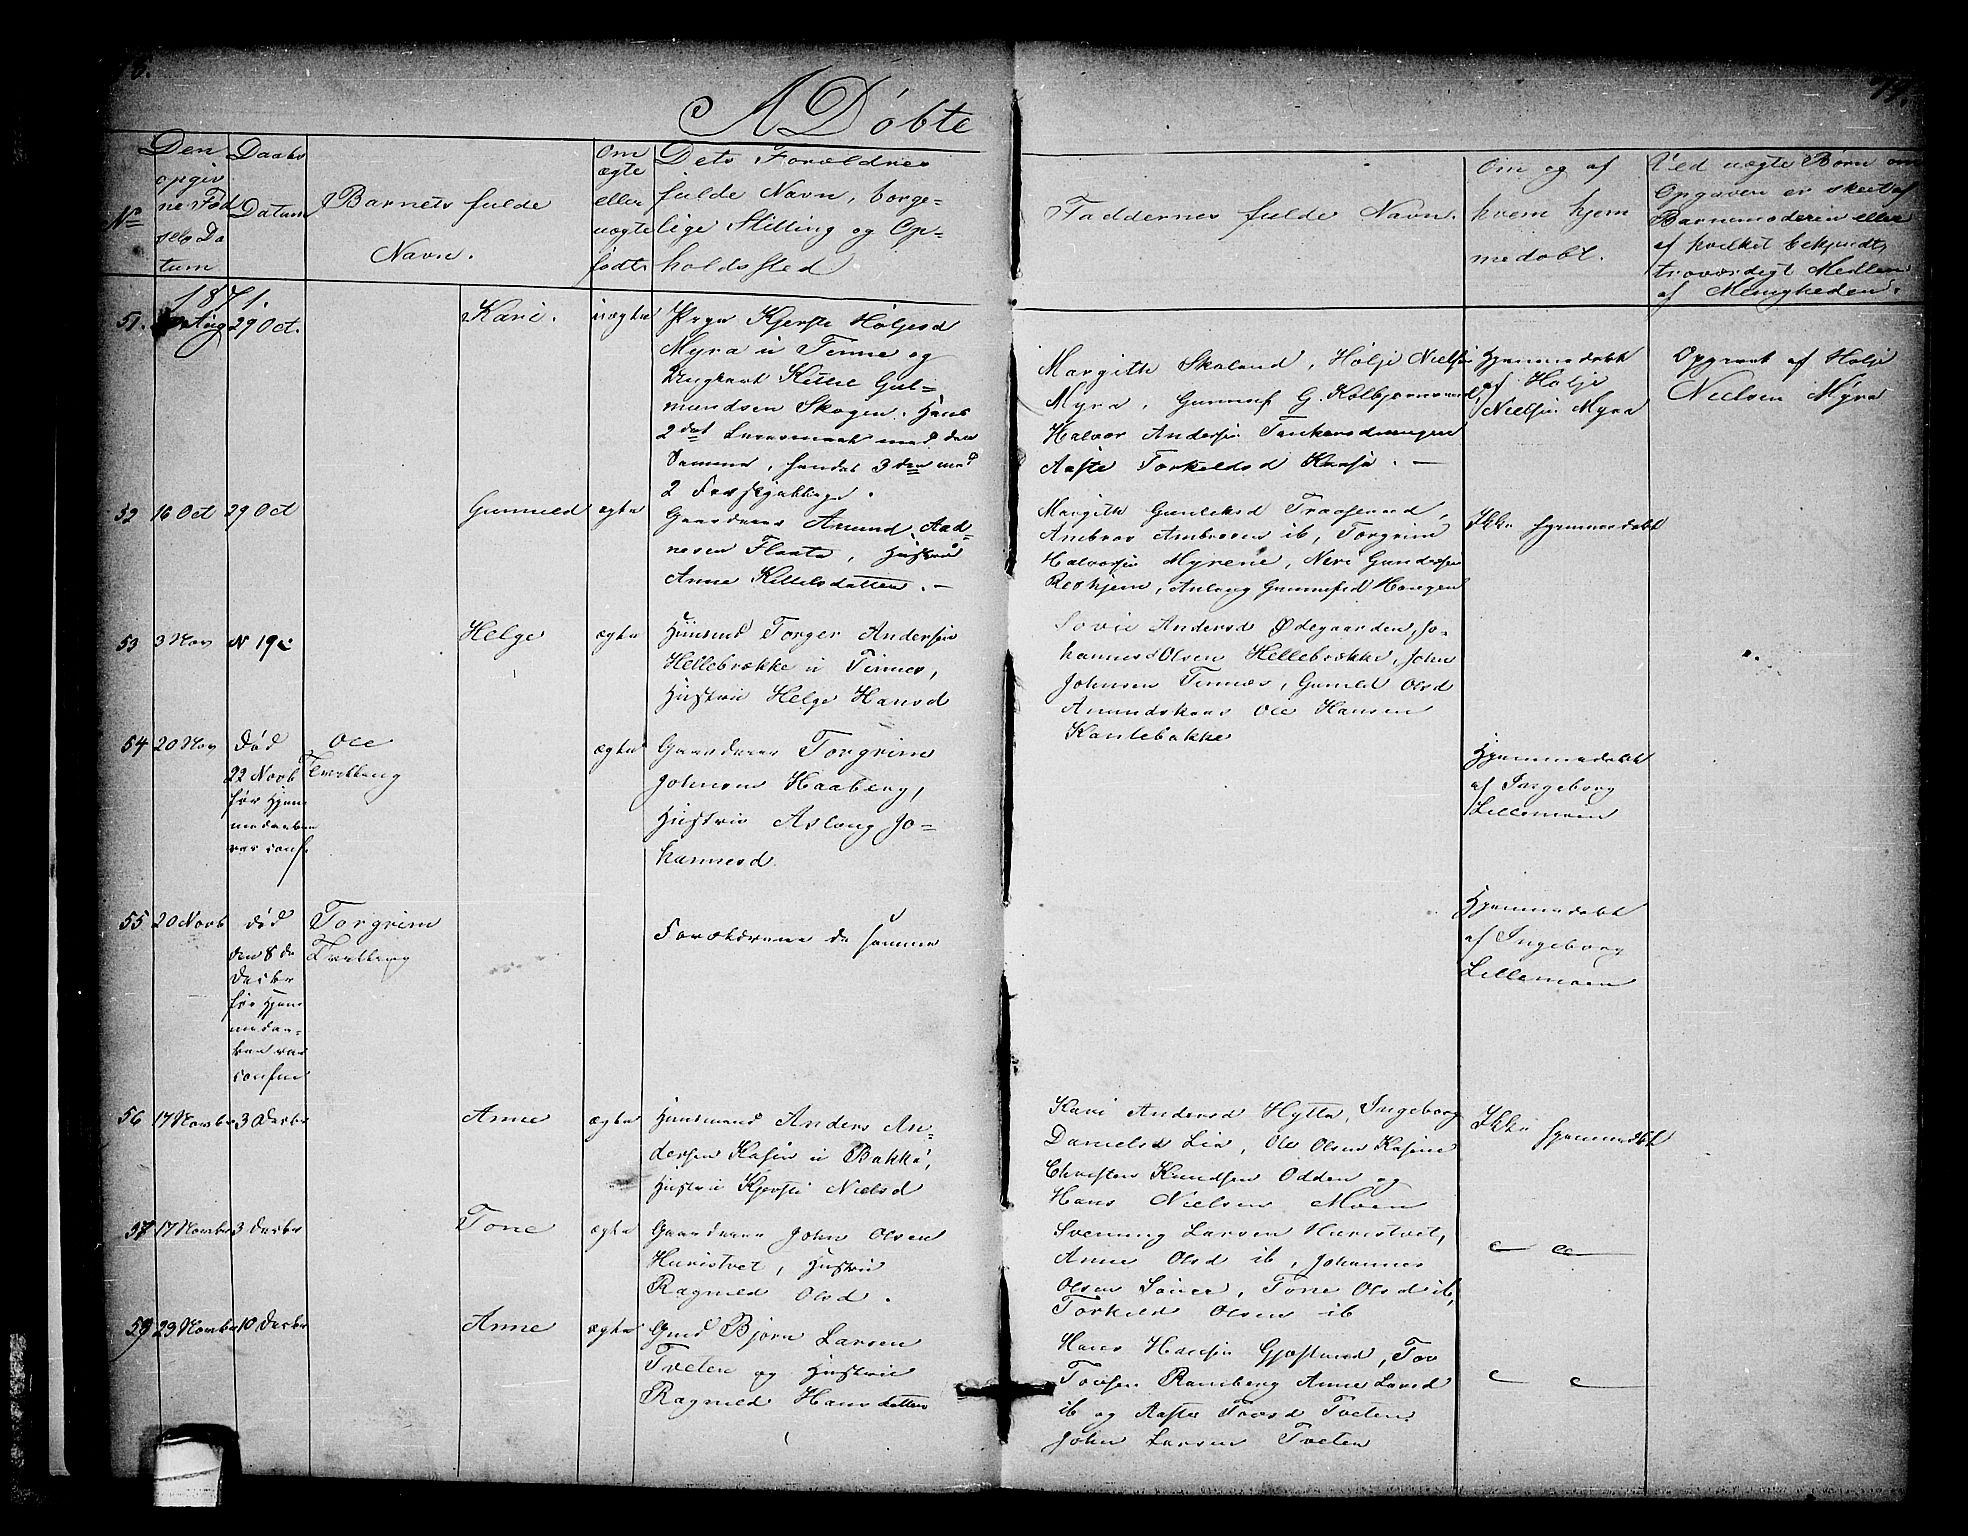 A Døbte
No
Den
opgiv
ne Fød
sels Da
tum
Daabs
Datum
Barnets fulde
Navn.
Om
ægte
eller
uægte
født
Dets Forældres
fulde Navn, borge=
lige Stilling og Op=
holdssted
Faddernes fulde Navn.
Om og af
hvem hjem
medøbt.
Ved uægte Børn om
Opgaven er skeet af
Barnemoderen eller
af hvilket bekjendt,
troværdigt Medlem
af Menigheden.
1871.
51.
29 Oct.
Kari.
uægte
Pige Kjerste Holjesd
Myra u Tinne og
Ungkarl Kittil Gul=
mundsen Skogen. Hans
2det Leiermaal med den
Samme, hendes 3die med
2
Margith Skoland, Holje Nielsen
Myra, Gunnuf G. Kolbjørnsrud,
Halvor Andersen
Aaste Torkildsd
Hjemmedøbt
af Holje
Nielsen Myra
Opgivet af Holje
Nielsen Myra
52
16 Oct
29 Oct
Gunnild
ægte
Gaardmand Amund Aad=
nesen Flaata, Hustru
Anne Kittilsdatter. —
Margith Gunleksd
Ambros Ambrosen ib, Torgrim
Halvorsen Myrene, Neri Gundersen
Reshjem, Aslaug Gunnufsd Haugen
Ikke hjemmedøbt
53
3 Nov
N 19
Helge
ægte
Huusmd Torger Andersen
Hellebrække u Tinnes,
Hustru Helge Hansd
Sovie Andersd Ødegaarden, Jo=
hannes Olsen Hellebrække, John
Johnsen Tinnes, Gunild Olsd
Amundskaas Ole Hansen
Kaslebakke
54
20 Nov
Død
22 Novb
før Hjem
medaaben
var conf.
Ole
Tvilling
ægte
Gaardmand Torgrim
Johnsen Haaberg,
Hustru Aslaug Jo=
hannesd
Hjemmedøbt
af Ingeborg
Lillemoen
55
20 Novb
død
den 8de
Decbr
før Hjem
medaa=
ben var
confm
Torgrim
Tvilling
Forældrene de samme
Hjemmedøbt
af Ingeborg
Lillemoen
56
17 Novbr
3 Decbr
Anne
ægte
Huusmand Anders An=
dersen Kasin u Bakke,
Hustru Kjersti Nielsd
Kari Andersd Hytta, Ingeborg
Danielsd Lia, Ole Olsen Kasine
Christen Knudsen Odden og
Hans Nielsen Moen
Ikke hjemmedøbt
57
17 Novbr
3 Decbr
Tone
ægte
Gaardmand John Olsen
Huristvet, Hustru
Ragnild Olsd.
Svenning Larsen Huristvet,
Anne Olsd ib, Johannes
Olsen Souer, Tone Olsd ib,
Torkild Olsen ib
59
23 Novbr
10 Decbr
Anne
ægte
Gmd Bjørn Larsen
Tveten og Hustru
Ragnild Hansdatter
Hans Hansen Gjæstrud, Tor
Torsen Ramberg Anne Larsd
ib og Aaste Torsd Tveten.
John Larsen Tveten